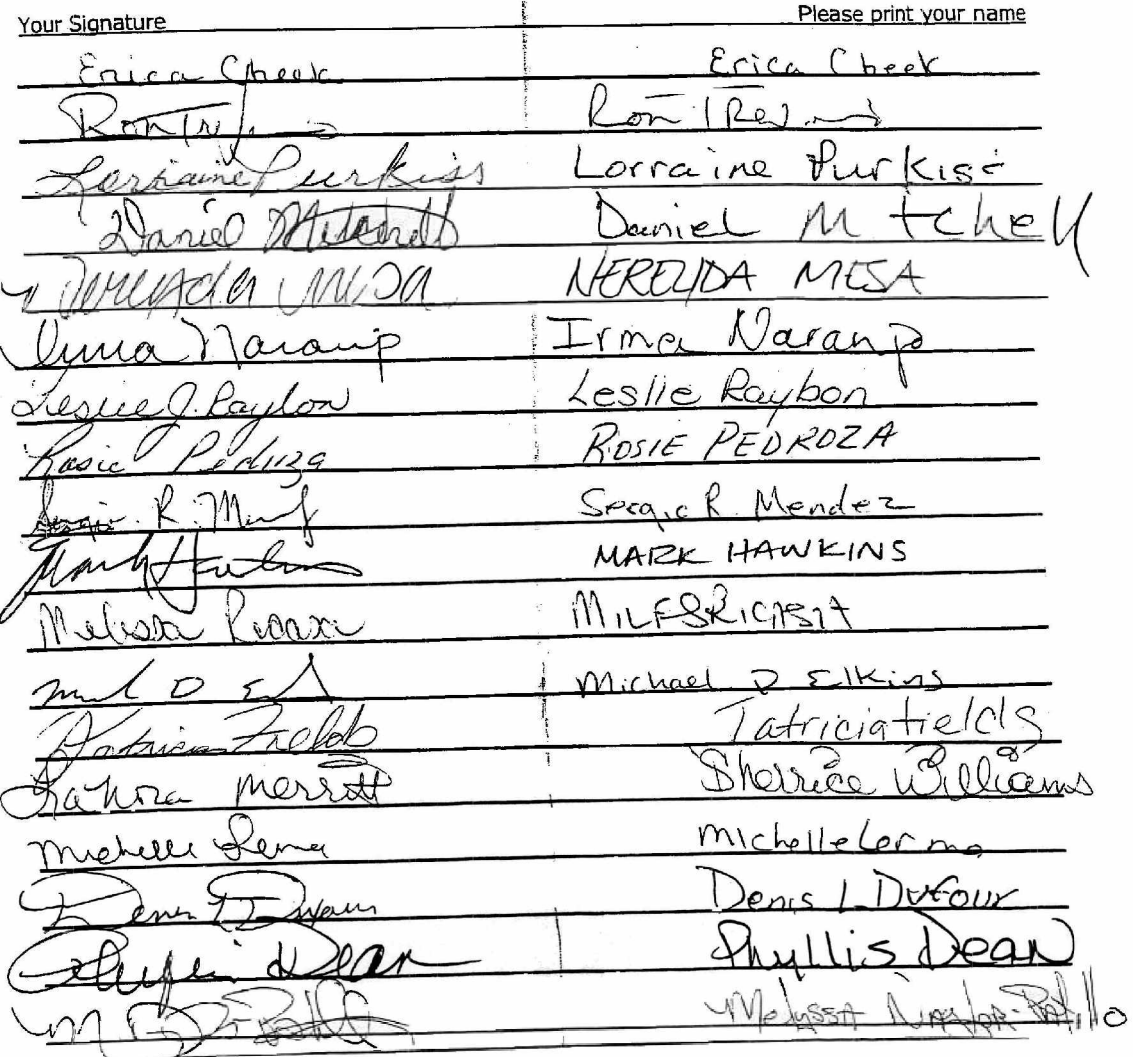 Your Signature Please print your name
Erica Cheek Erica Cheek
Ron Ron
Lorraine Purkiss Lorraine Purkiss
Daniel Mitchell Daniel Mitchell
Nereyda Mesa NEREYDA MESA
Irma Naranjo Irma Naranjo
Leslie J. Raybon Leslie Raybon
Rosie Pedroza ROSIE PEDROZA
Sergio R. Sergio R. Mendez
Mark Hawkins MARK HAWKINS
Melissa
D Michael D Elkins
Patricia Fields Patricia Fields
LaNora Merritt Sherrice Williams
Michelle Lerma Michelle Lerma
Denis L Dufour
Phyllis Dean Phyllis Dean
M Melyssa Naylor-Patillo